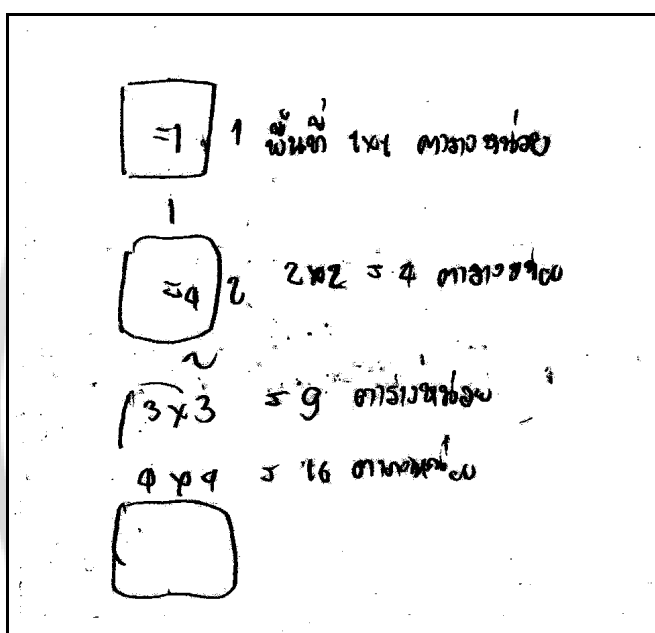 =1 1 พื้นที่ 1x1 ตารางหน่วย
1
=4 2 2x2 = 4 ตารางหน่วย
2
3x3 = 9 ตารางหน่วย
4x4 = 16 ตารางหน่วย